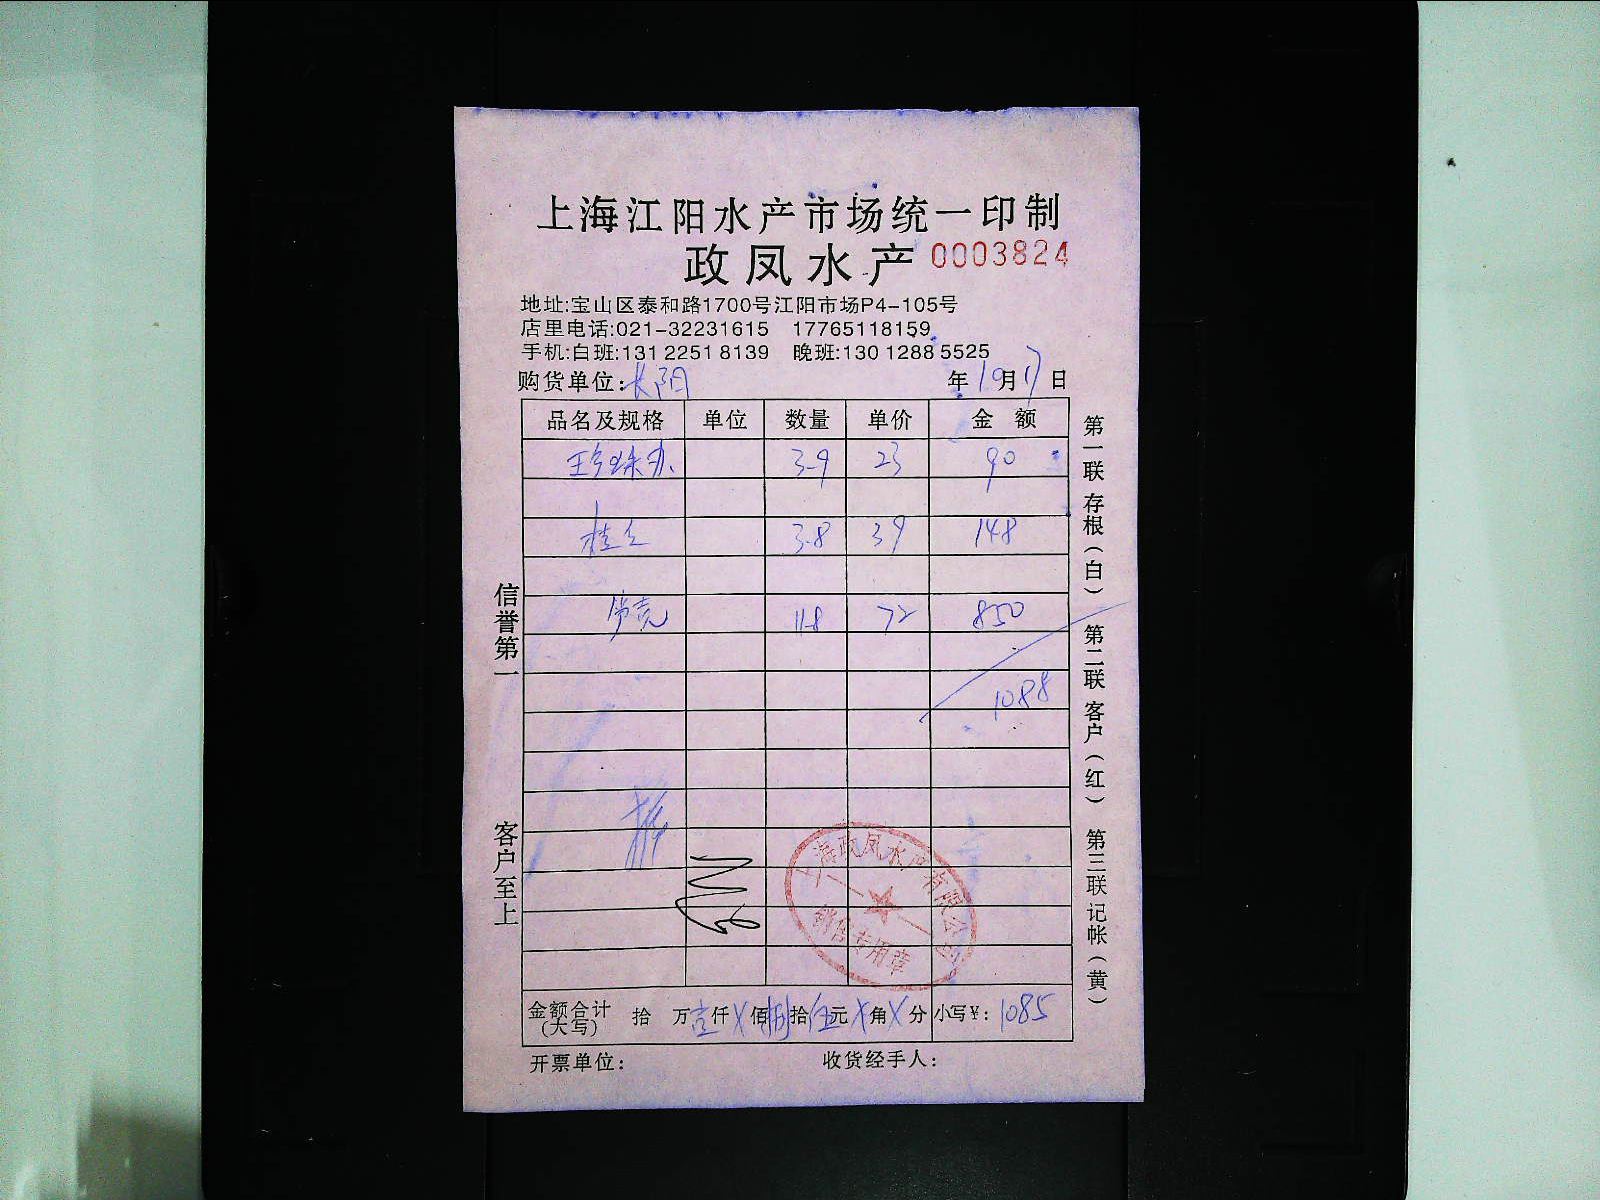 上海江阳水产市场统一印制
政凤水产 0003824
地址:宝山区泰和路1700号江阳市场P4-105号
店里电话:021-32231615 17765118159
手机:白班:131 2251 8139 晚班:130 1288 5525
购货单位:长阳 年10月17日
品名及规格 单位 数量 单价 金额
珍珠 3-9 23 90
桂 3-8 39 148
11-8 72 850
1088
金额合计(大写) 拾 万壹仟X佰捌拾伍元X角X分 小写¥:1085
开票单位: 收货经手人:
信誉第一
客户至上
第一联 存根(白) 第二联 客户(红) 第三联 记帐(黄)
上海政凤水产有限公司
销售专用章